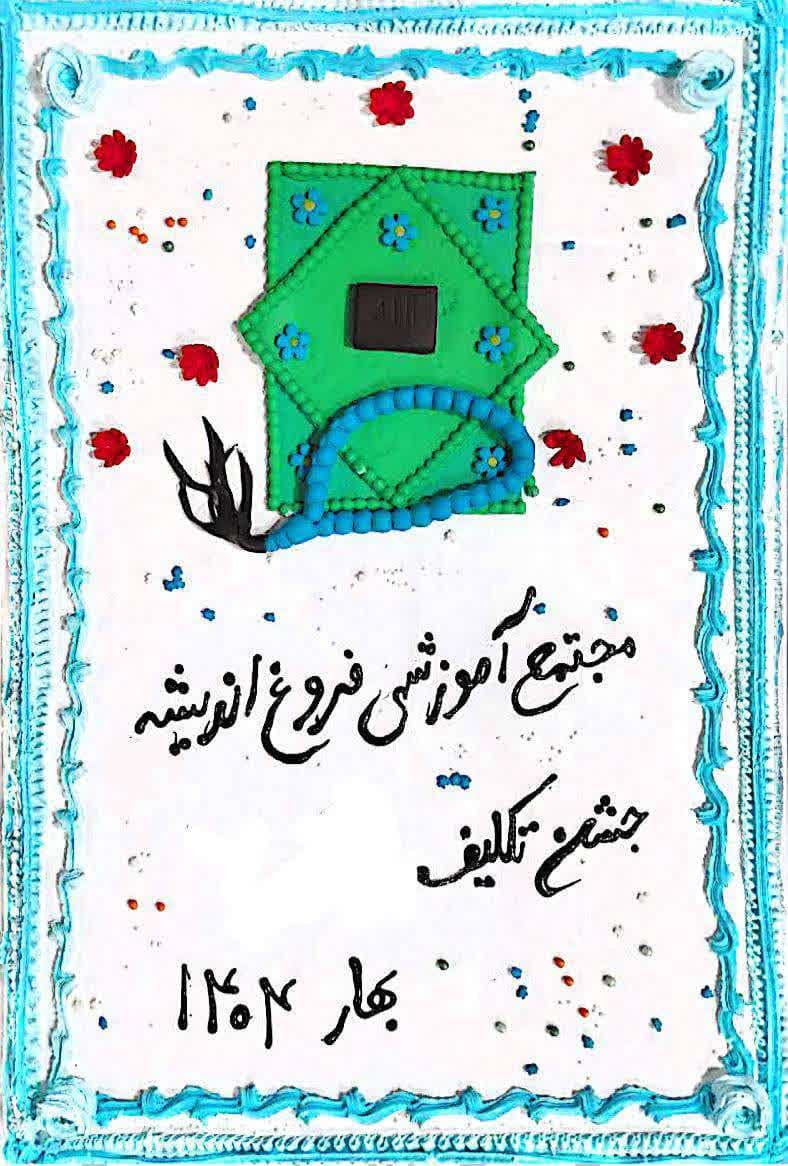 الله
مجتمع آموزشی فروغ اندیشه
جشن تکلیف
بهار ۱۴۰۴